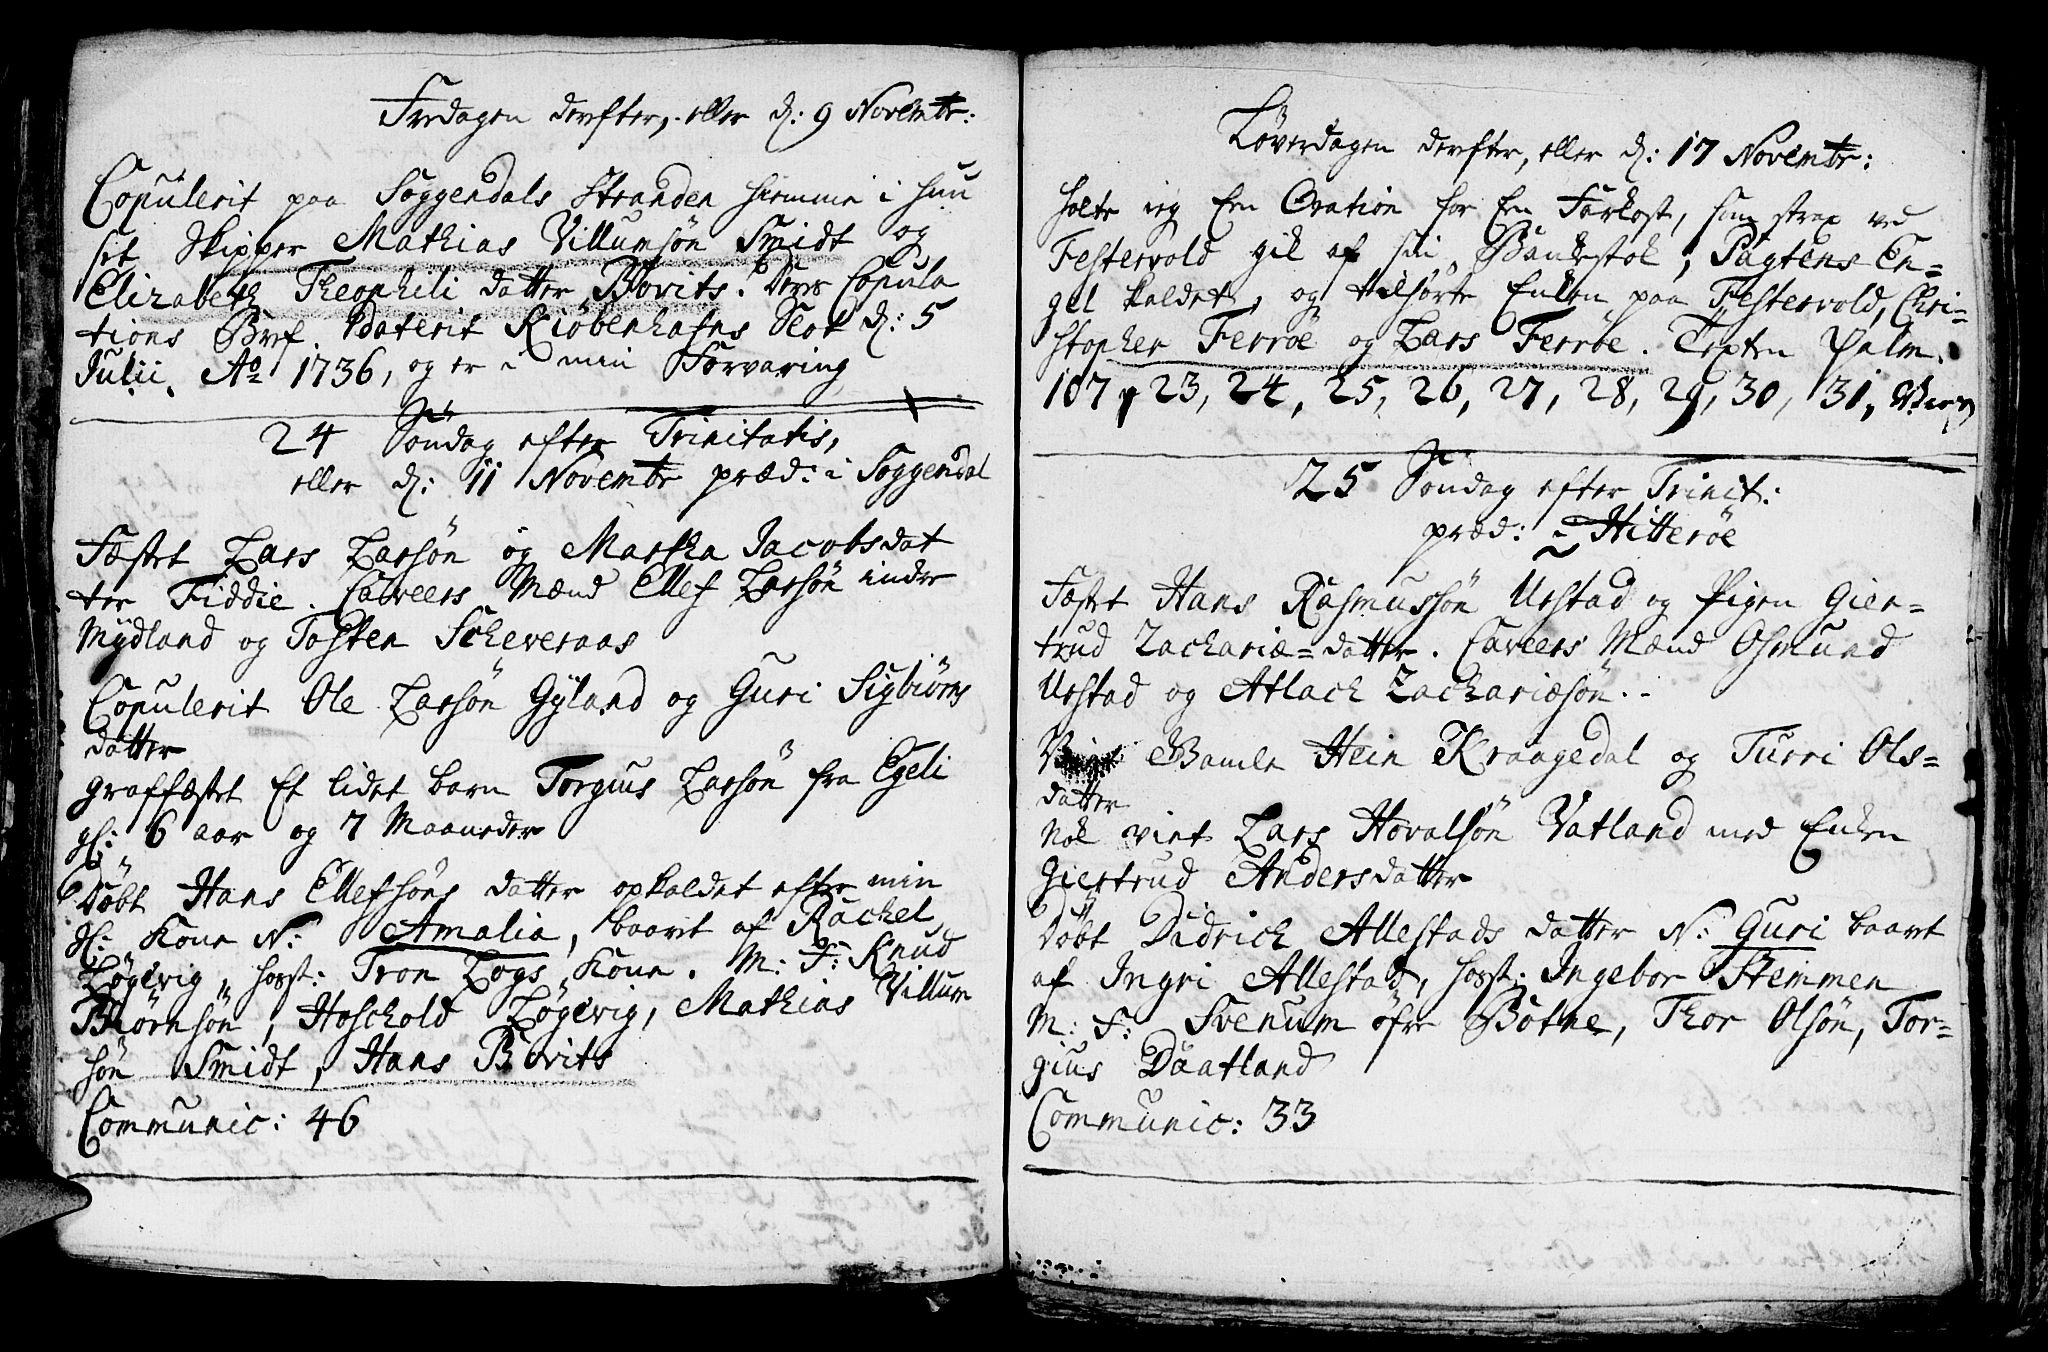 Fredagen derefter, eller d: 9 Novembr:
Copulerit paa Soggendals Stranden hiemme i huu
set Skipper Mathias Villumsön Smidt og
Elizabeth Theophili datter Bovits. Deres Copula
tions Bref daterit Kiöbenhafns Slot d: 5
Julii Ao 1736, og er i min Forvaring
24 Söndag efter Trinitatis,
eller d: 11 Novembr præd: i Soggendal
Fæstet Lars Larsön og Martha Jacobsdat
ter Fiddie. Caveers Mænd Ellef Larsön indre
Mydland og Tosten Scheveraas
Copulerit Ole Larsön Gyland og Guri Sigbiörns
datter
Graffæstet Et lidet barn Torgius Larsön fra Egeli
gl: 6 aar og 7 Maaneder
Döbt Hans Ellefsöns datter opkaldet efter min
Sl: Kone N: Amalia, baaret af Rachel
Lögevig, hosst: Tron Logs Kone. M: F: Knud
Biörnsön, Hoschold Lögevig, Mathias Villum
sön Smidt, Hans Bovits
Communic: 46
Löverdagen derefter, eller d: 17 Novembr:
holte ieg Een Oration for Een Farkost, som strax ved
Festervold gik af sin Bankestok, Pagtens En=
gel kaldet, og tilhörte Enken paa Festervold, Chri=
stopher Ferröe og Lars Ferröe. Texten Psalm.
107 v 23, 24, 25, 26, 27, 28, 29, 30, 31, Vers
25 Söndag efter Trinit:
præd: i Hitteröe
Fæstet Hans Rasmussön Urstad og Pigen Gier=
trud Zachariæ=datter. Caveers Mænd Osmund
Urstad og Atlach Zachariæsön.
Viet Gamle Hein Kraagedal og Turri Ols=
datter
Nok viet Lars Hovalsön Vatland med Enken
Giertrud Andersdatter
Döbt Didrich Allestads datter N: Guri baaret
af Ingri Allestad, hosst: Ingebor Stemmen
M: F: Svenum öfre Botne, Thor Olsön, Tor=
gius Daatland
Communic: 33